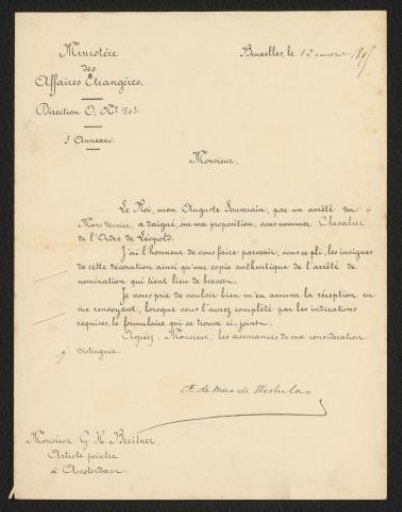 Ministère
des
Affaires Etrangères.
Direction O. Nº
Annexes.
Bruxelles, le mars 1895
Monsieur,
Le Roi, mon Auguste Souverain, par un arrêté du 6
Mars dernier, a daigné, sur ma proposition, vous nommer Chevalier
de l'Ordre de Léopold.
J'ai l'honneur de vous faire parvenir, sous ce pli, les insignes
de cette décoration ainsi qu'une copie authentique de l'arrêté de
nomination qui tient lieu de brevet.
Je vous prie de vouloir bien m'en assurer la réception en
me renvoyant, lorsque vous l'aurez complété par les indications
requises, le formulaire qui se trouve ci-joint.
Agréez, Monsieur, les assurances de ma considération
distinguée.
Cte de
Monsieur G. H. Breitner,
Artiste peintre
à Amsterdam